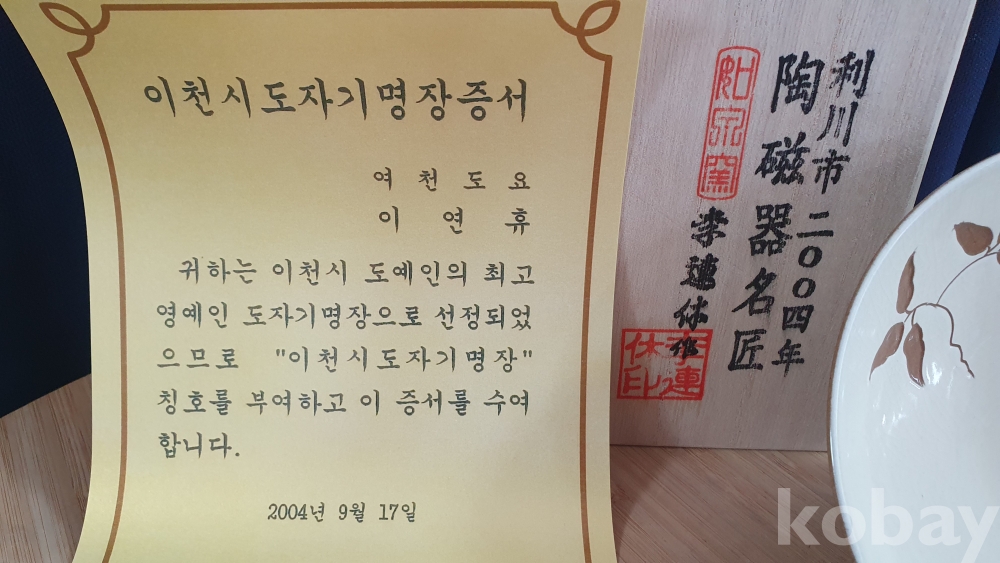 이천시도자기명장증서
여천도요
이연휴
귀하는 이천시 도예인의 최고
영예인 도자기명장으로 선정되었
으므로 "이천시도자기명장"
칭호를 부여하고 이 증서를 수여
합니다.
2004년 9월 17일
利川市 二〇〇四年
陶磁器名匠
李連休作
李連
休印
kobay